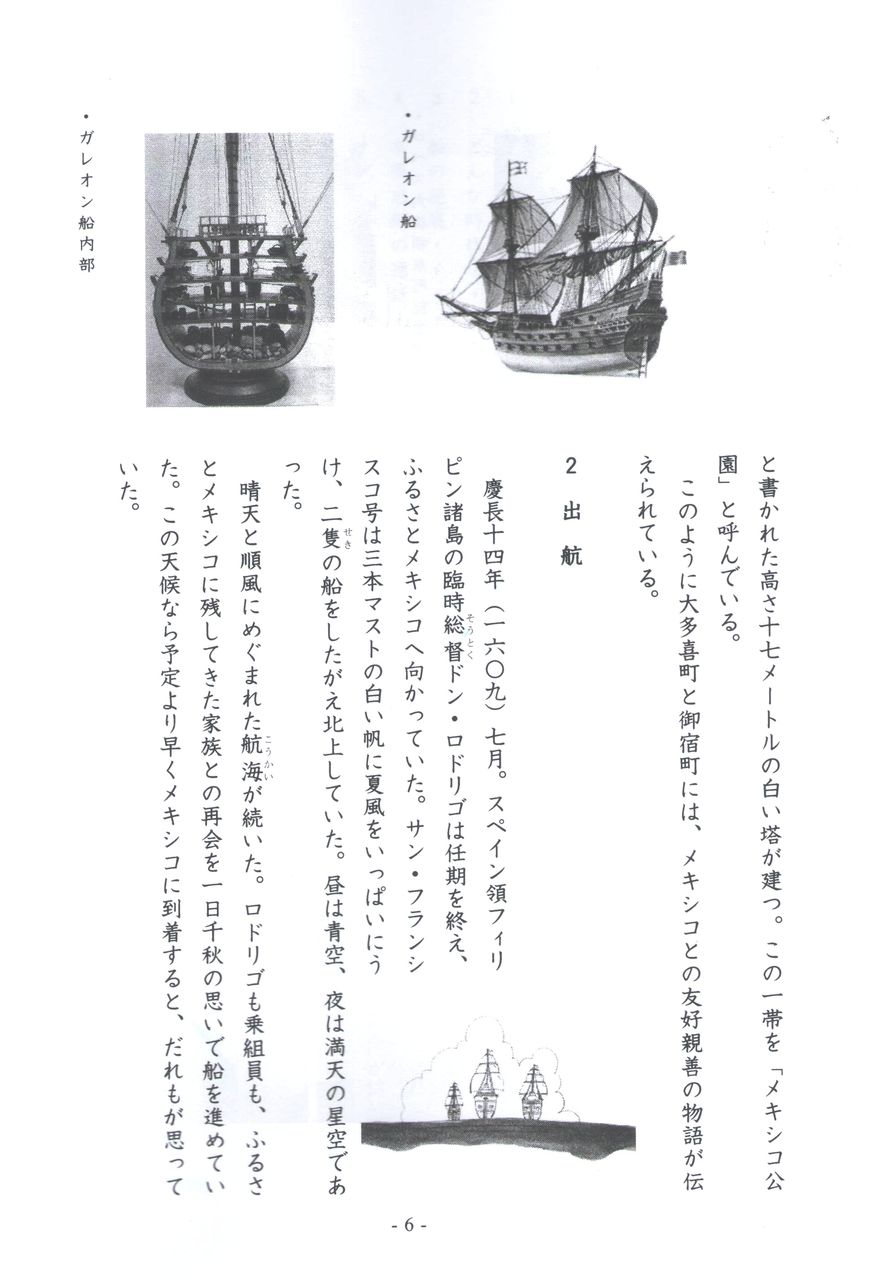 と書かれた高さ十七メートルの白い塔が建つ。この一帯を「メキシコ公
園」と呼んでいる。
このように大多喜町と御宿町には、メキシコとの友好親善の物語が伝
えられている。
2 出航
慶長十四年（一六〇九）七月。スペイン領フィリ
ピン諸島の臨時総督ドン・ロドリゴは任期を終え、
そうとく
ふるさとメキシコへ向かっていた。サン・フランシ
スコ号は三本マストの白い帆に夏風をいっぱいにう
け、二隻の船をしたがえ北上していた。昼は青空、夜は満天の星空であ
せき
った。
晴天と順風にめぐまれた航海が続いた。ロドリゴも乗組員も、ふるさ
こうかい
とメキシコに残してきた家族との再会を一日千秋の思いで船を進めてい
た。この天候なら予定より早くメキシコに到着すると、だれもが思って
いた。
・ガレオン船
・ガレオン船内部
- 6 -